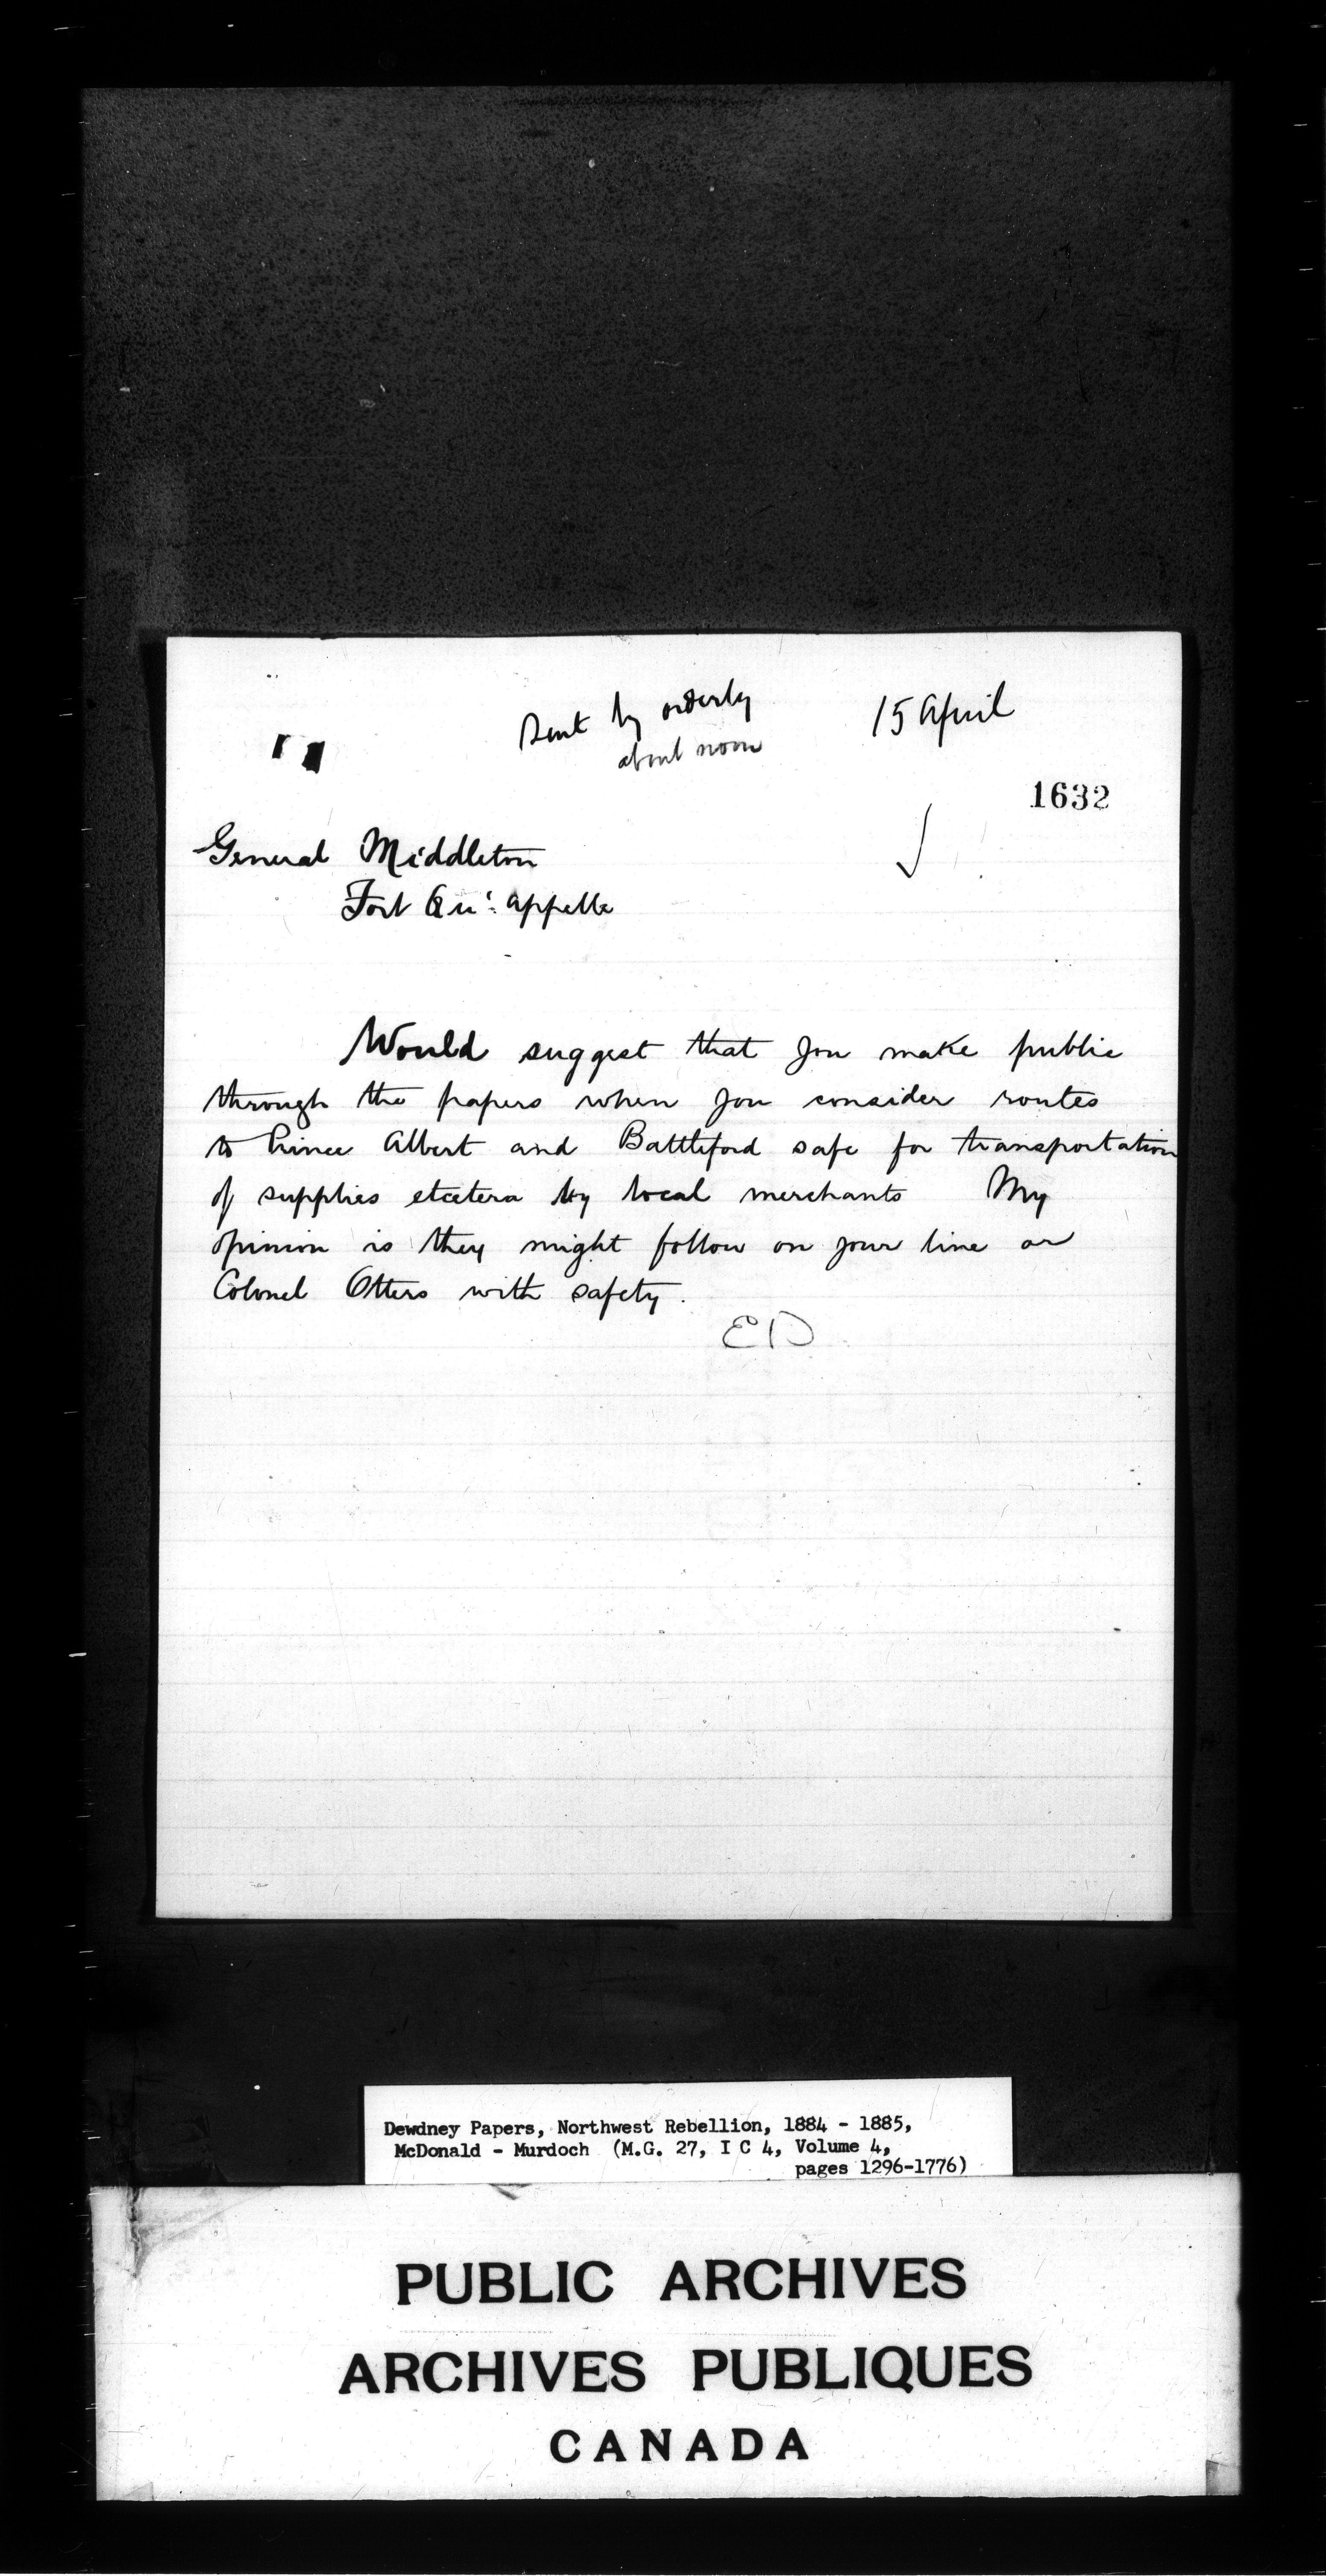 Sent by orderly
about noon
15 April
1632
General Middleton
Fort Qu'Appelle
Would suggest that you make public
through the papers when you consider routes
to Prince Albert and Battleford safe for transportation
of supplies etcetera by local merchants My
opinion is they might follow on your line or
Colonel Otters with safety.
ED
Dewdney Papers, Northwest Rebellion, 1884 - 1885,
McDonald - Murdoch (M.G. 27, I C 4, Volume 4,
pages 1296-1776)
PUBLIC ARCHIVES
ARCHIVES PUBLIQUES
CANADA